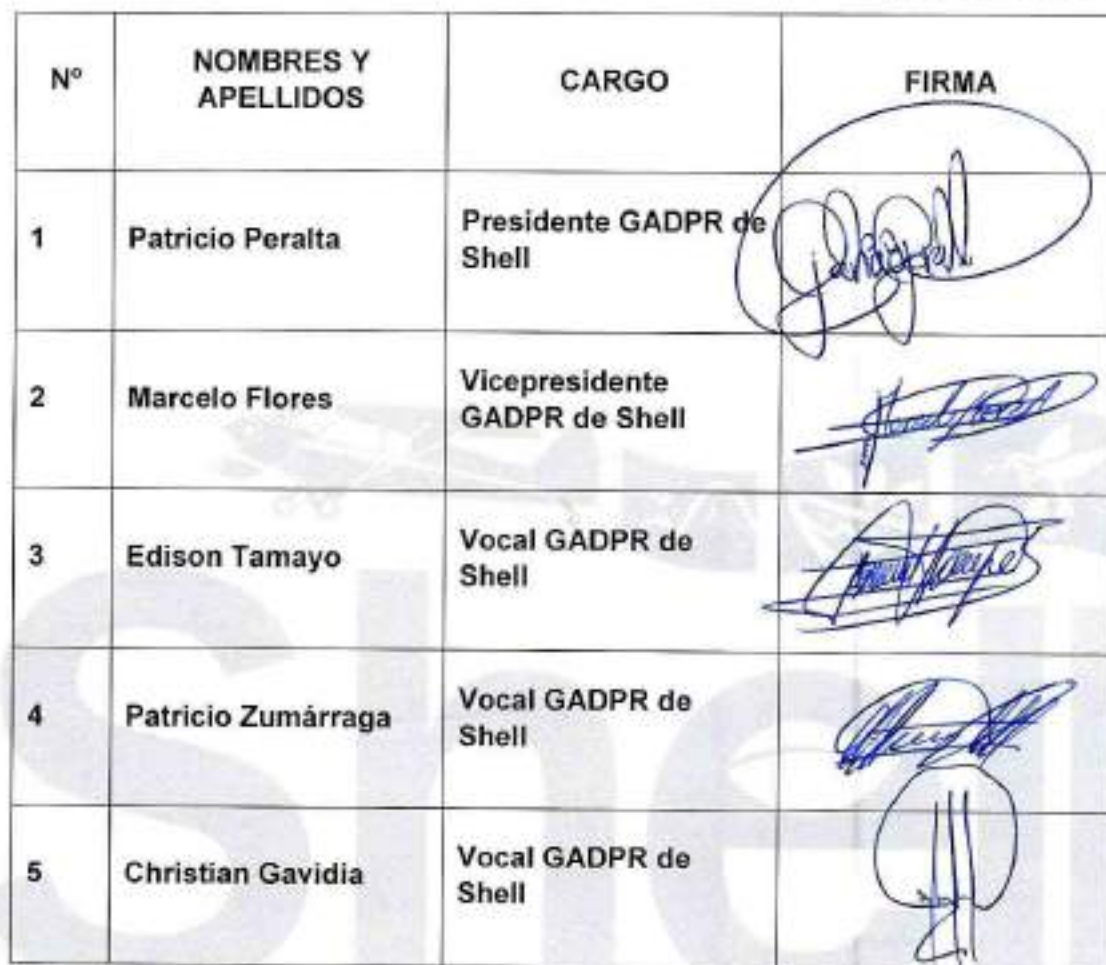 Nº NOMBRES Y APELLIDOS CARGO FIRMA
1 Patricio Peralta Presidente GADPR de Shell
2 Marcelo Flores Vicepresidente GADPR de Shell
3 Edison Tamayo Vocal GADPR de Shell
4 Patricio Zumárraga Vocal GADPR de Shell
5 Christian Gavidia Vocal GADPR de Shell
Shell